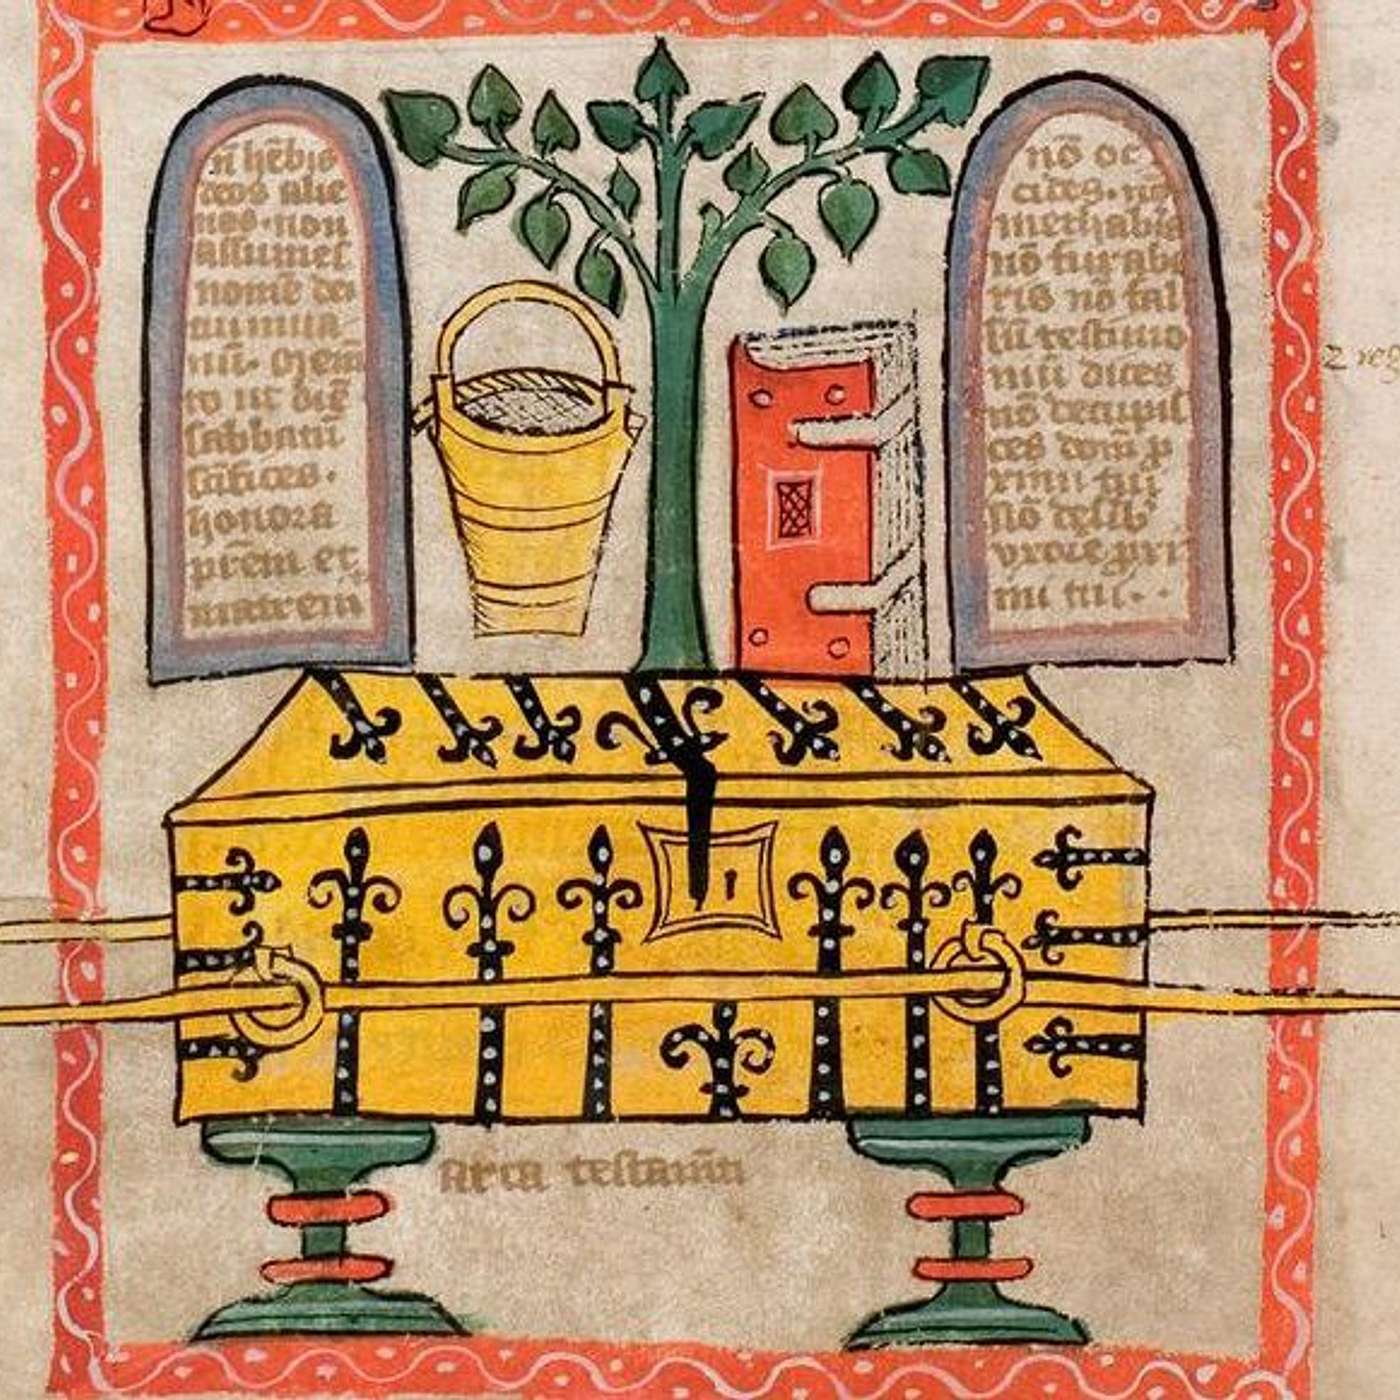 nō hēbis
deos alie
nos · non
assumes
nomē dei
tui in uā
nū · Mem
to ut diē
sabbati
sc̄ifices ·
honora
prēm et
matrem
nō oc
cides · nō
methabis
nō furabe
ris nō fal
sū testimo
niū dices
nō
ces domū p
ximi tui
nō
uxorē pxi
mi tui ·
arca testamn̄ti